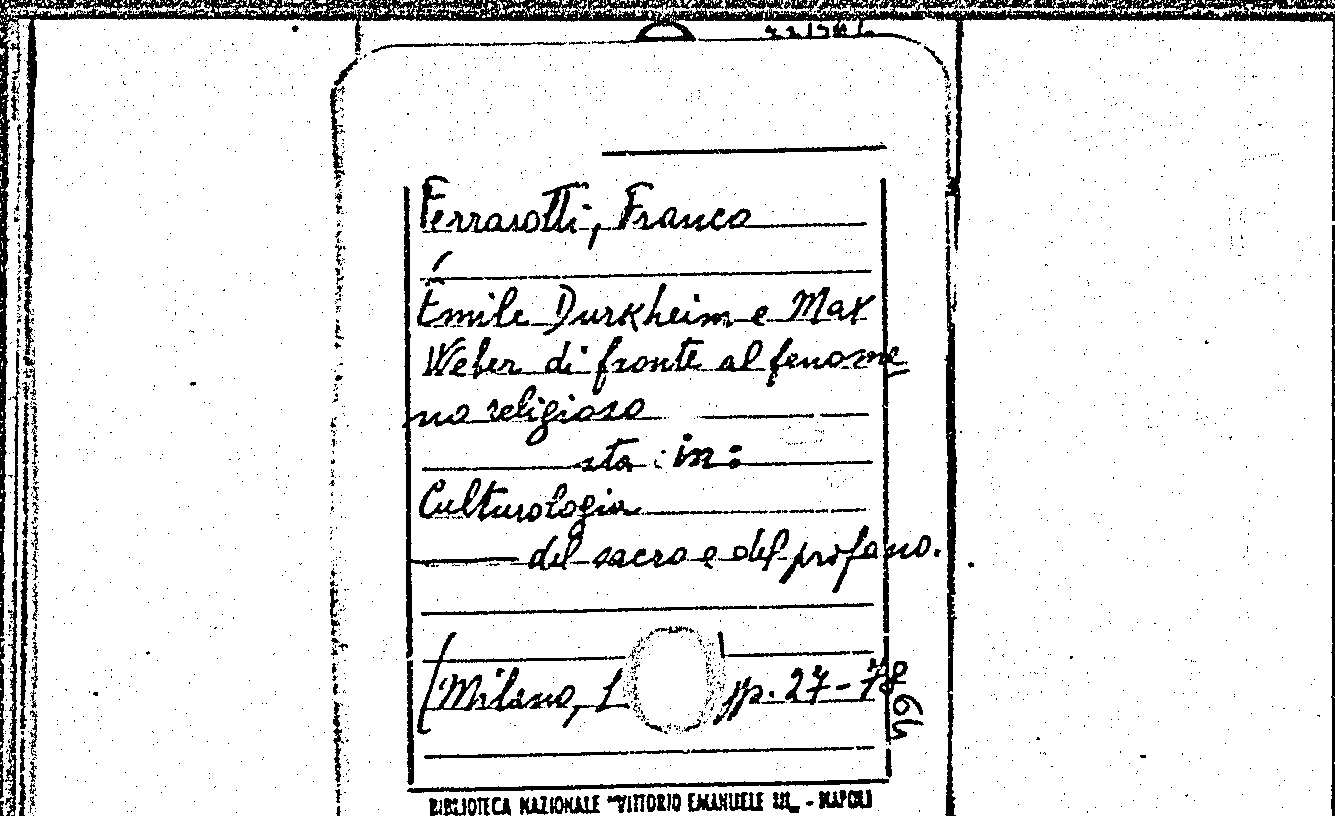 Ferrarotti, Franco
Émile Durkheim e Max
Weber di fronte al fenome
no religioso
sta in:
Culturologia
del sacro e del profano.
(Milano, 1 pp. 27-78
64
BIBLIOTECA NAZIONALE "VITTORIO EMANUELE III" - NAPOLI